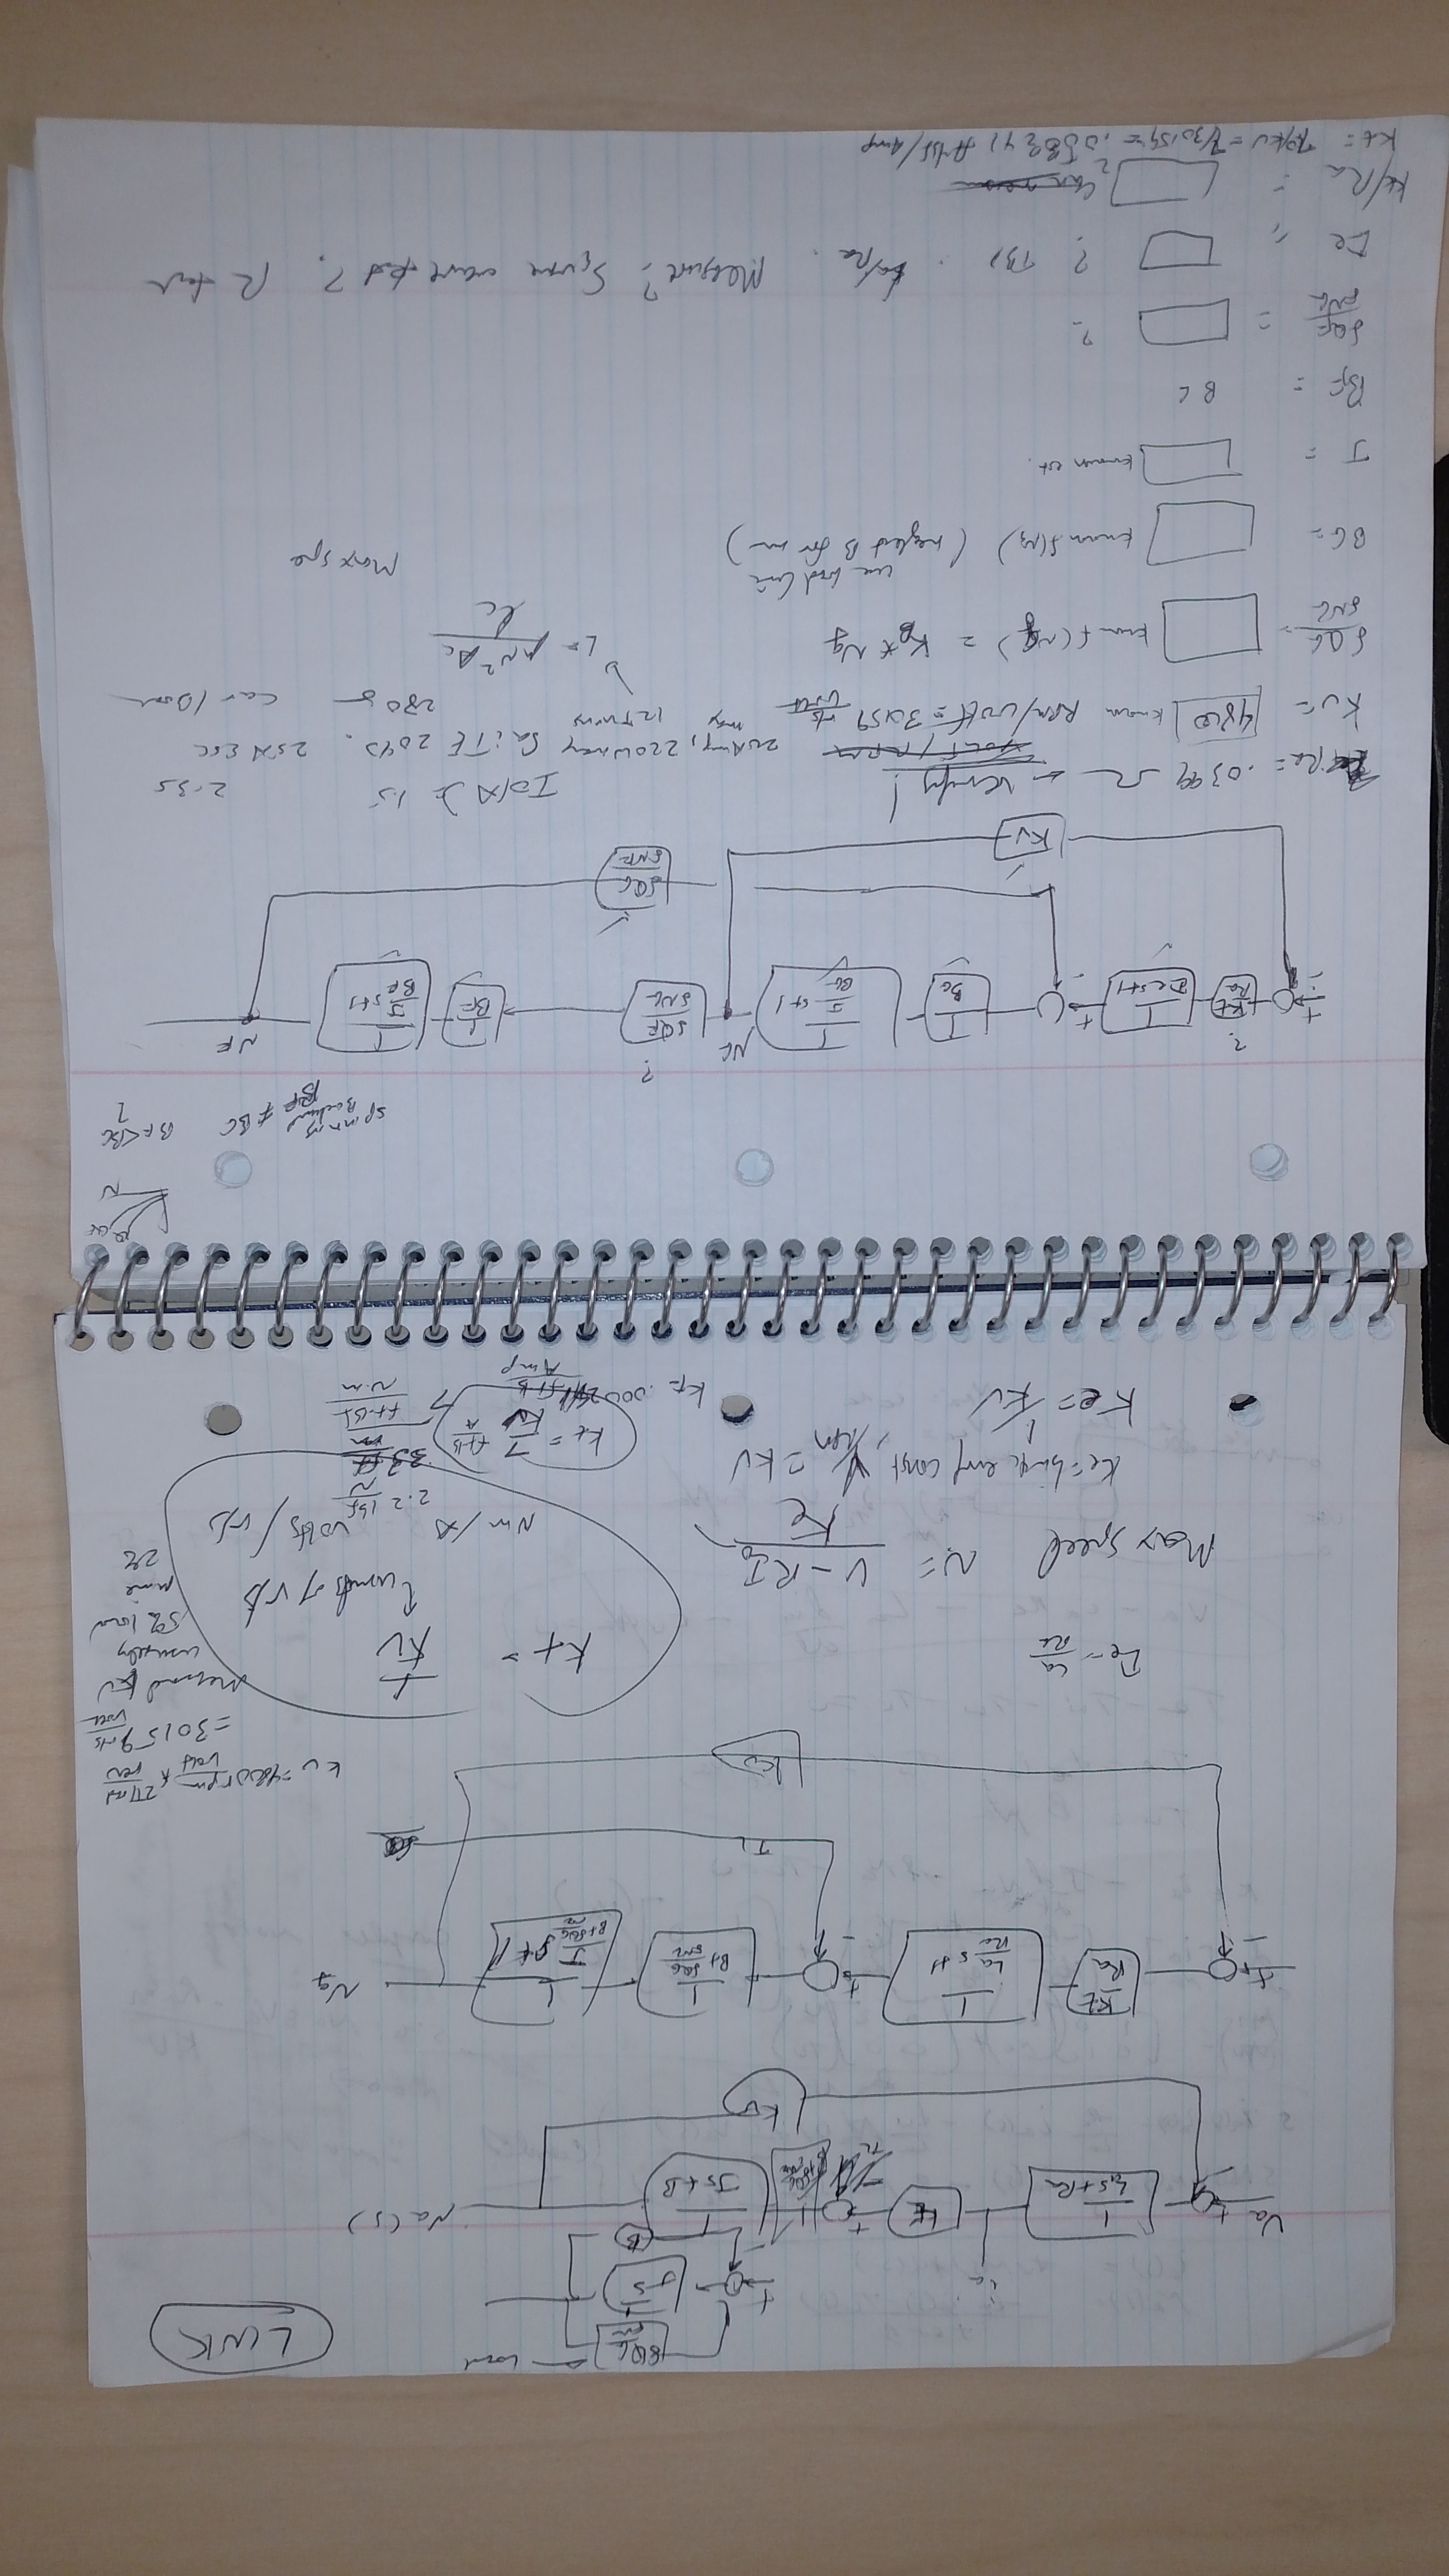 LINK
Load
δQG
1
JS
+
B
ia
Va
+
1
LaS+Ra
Kt
+
1
JS+B
Na(s)
TL
Kv
+
-
Kt
Ra
1
La/Ra s+1
+
-
1
B+ δQG/δNG
1
J
B+ δQG
Ng
TL
Kv
Kv = 4800 rpm/volt x 2π rad/rev
= 30159 r/s/volt
Measured Kv
usually
5% lower
mine
2%
τe = La/Ra
Kt = 1/Kv
↑ units of r/s
Nm/A volts/r/s
Max speed N = V - R I0 / Ke
Ke = back emf const, V/rpm = Kv
Ke = 1/Kv
2.2 lbf/N
ft·lbf/N·m
Kt = 7/Kv ft·lb/A
Kt = .0002
Amp
N
spinning
Backward
BF ≠ BG
BF < BG
?
+
-
?
Kt
Ra
1
τe s+1
+
-
1
BG
1
J/BG s+1
NG
?
δQF
δNG
1
BF
1
J/BF s+1
NF
δQG
δNF
Kv
Ra = .0399 Ω ← verify!
VOLT/RPM
Io(A) = 1.5
2-3s
Kv = 4800 known RPM/volt = 30159 r/s/volt
20Amp max, 220W max
12 Turns
2040. 25A ESC
280g car/Boat
δQG/δNG = known f(Ng) = KB * Ng
L = μN²Ac / lc
use load line
BG = known f(Ng) (neglect B for now)
Max spe
J = known est.
BF = BG
δQF/δNG = ?
τe = ? TBD. La/Ra. Measure? Square wave test?. R test
Kt/Ra =
Kt = 7/Kv = 7/30159 = ft·lbf/Amp